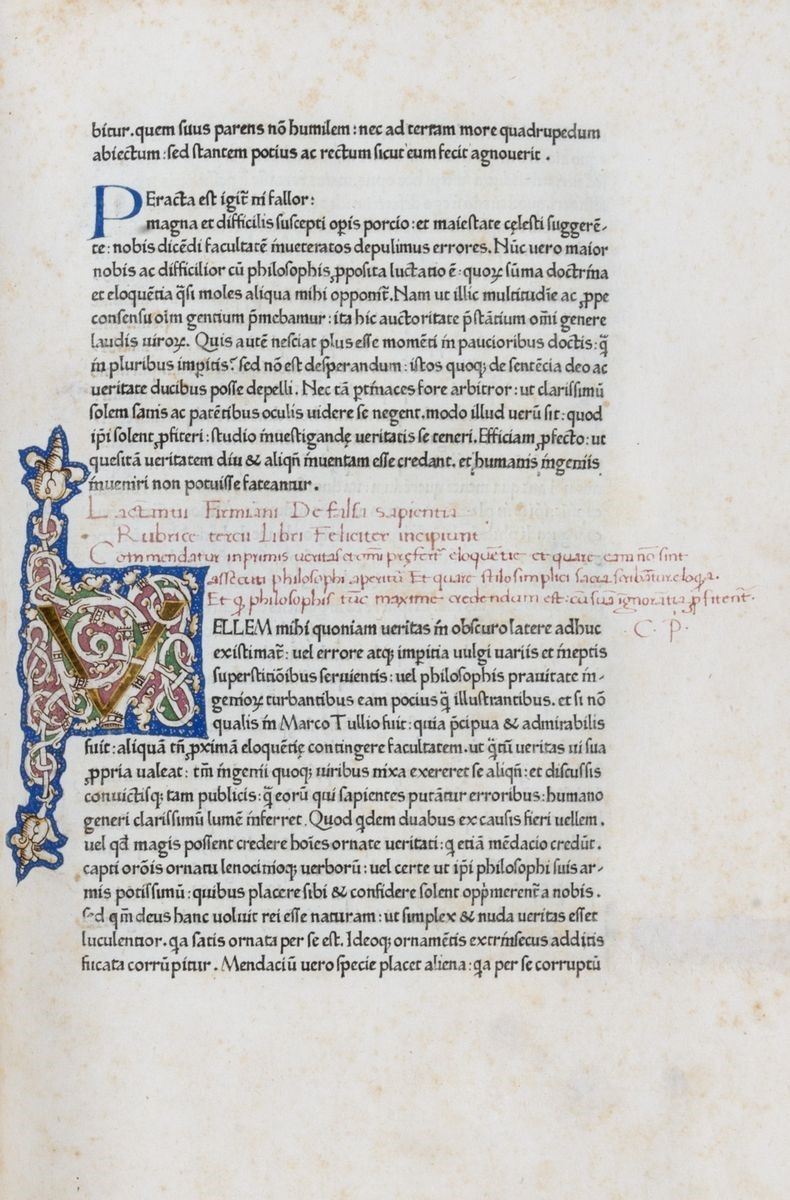 bitur. quem suus parens nō humilem: nec ad terram more quadrupedum
abiectum: sed stantem potius ac rectum sicut eum fecit agnouerit.
PEracta est igit᷑ ni fallor:
magna et difficilis suscepti opis porcio: et maiestate cęlesti suggerē-
te: nobis dicēdi facultatē inueteratos depulimus errores. Nūc uero maior
nobis ac difficilior cū philosophis ꝓposita luctatio ē: quoꝝ sūma doctrina
et eloquētia q̄si moles aliqua mihi opponit᷑. Nam ut illic multitudīe ac ꝓpe
consensu oīm gentium p̄mebamur: ita hic auctoritate p̄stātium omī genere
laudis uiroꝝ. Quis autē nesciat plus esse momēti in paucioribus doctis: q̄
in pluribus impitis? sed nō est desperandum: istos quoqꝫ de sentēcia deo ac
ueritate ducibus posse depelli. Nec tā ptinaces fore arbitror: ut clarissimū
solem sanis ac patētibus oculis uidere se negent. modo illud uerū sit: quod
ip̄i solent ꝓfiteri: studio inuestigandę ueritatis se teneri. Efficiam ꝓfecto: ut
quesitā ueritatem diu & aliqn̄ inuentam esse credant. et humanis ingeniis
inueniri non potuisse fateantur.
Lactantii Firmiani De falsa sapientia
Rubrice tercii Libri Feliciter incipiunt
Commendatur inprimis ueritas et omī p̨fert᷑ eloquętie et quare eam nō sint
assecuti philosophi aperitū Et quare stilo simplici sacra scribātur eloq̄a.
Et q̄ philosophis tūc maxime credendum est: cū suā ignorātiā ꝓfitent᷑.
C. P.
VELLEM mihi quoniam ueritas in obscuro latere adhuc
existimat᷑: uel errore atqꝫ impitia uulgi uariis et ineptis
superstitiōibus seruientis: uel philosophis prauitate in-
genioꝝ turbantibus eam pocius q̄ illustrantibus. et si nō
qualis in Marco Tullio fuit: quia p̄cipua & admirabilis
fuit: aliquā tn̄ ꝓximā eloquētię contingere facultatem. ut q̄tū ueritas ui sua
ꝓpria ualeat: tm̄ ingenii quoqꝫ uiribus nixa exereret se aliqn̄: et discussis
conuictisqꝫ tam publicis: q̄ eorū qui sapientes putātur erroribus: humano
generi clarissimū lumē inferret. Quod q̄dem duabus ex causis fieri uellem.
uel qd̄ magis possent credere hoīes ornate ueritati: q̄ etiā mēdacio credūt.
capti orōis ornatu lenocinioqꝫ uerborū: uel certe ut ip̄i philosophi suis ar-
mis potissimū: quibus placere sibi & confidere solent opp̄merent᷑ a nobis.
sed qm̄ deus hanc uoluit rei esse naturam: ut simplex & nuda ueritas esset
luculentior. q̄a satis ornata per se est. Ideoqꝫ ornamētis extrinsecus additis
fucata corrūpitur. Mendaciū uero specie placet aliena: q̄a per se corruptū